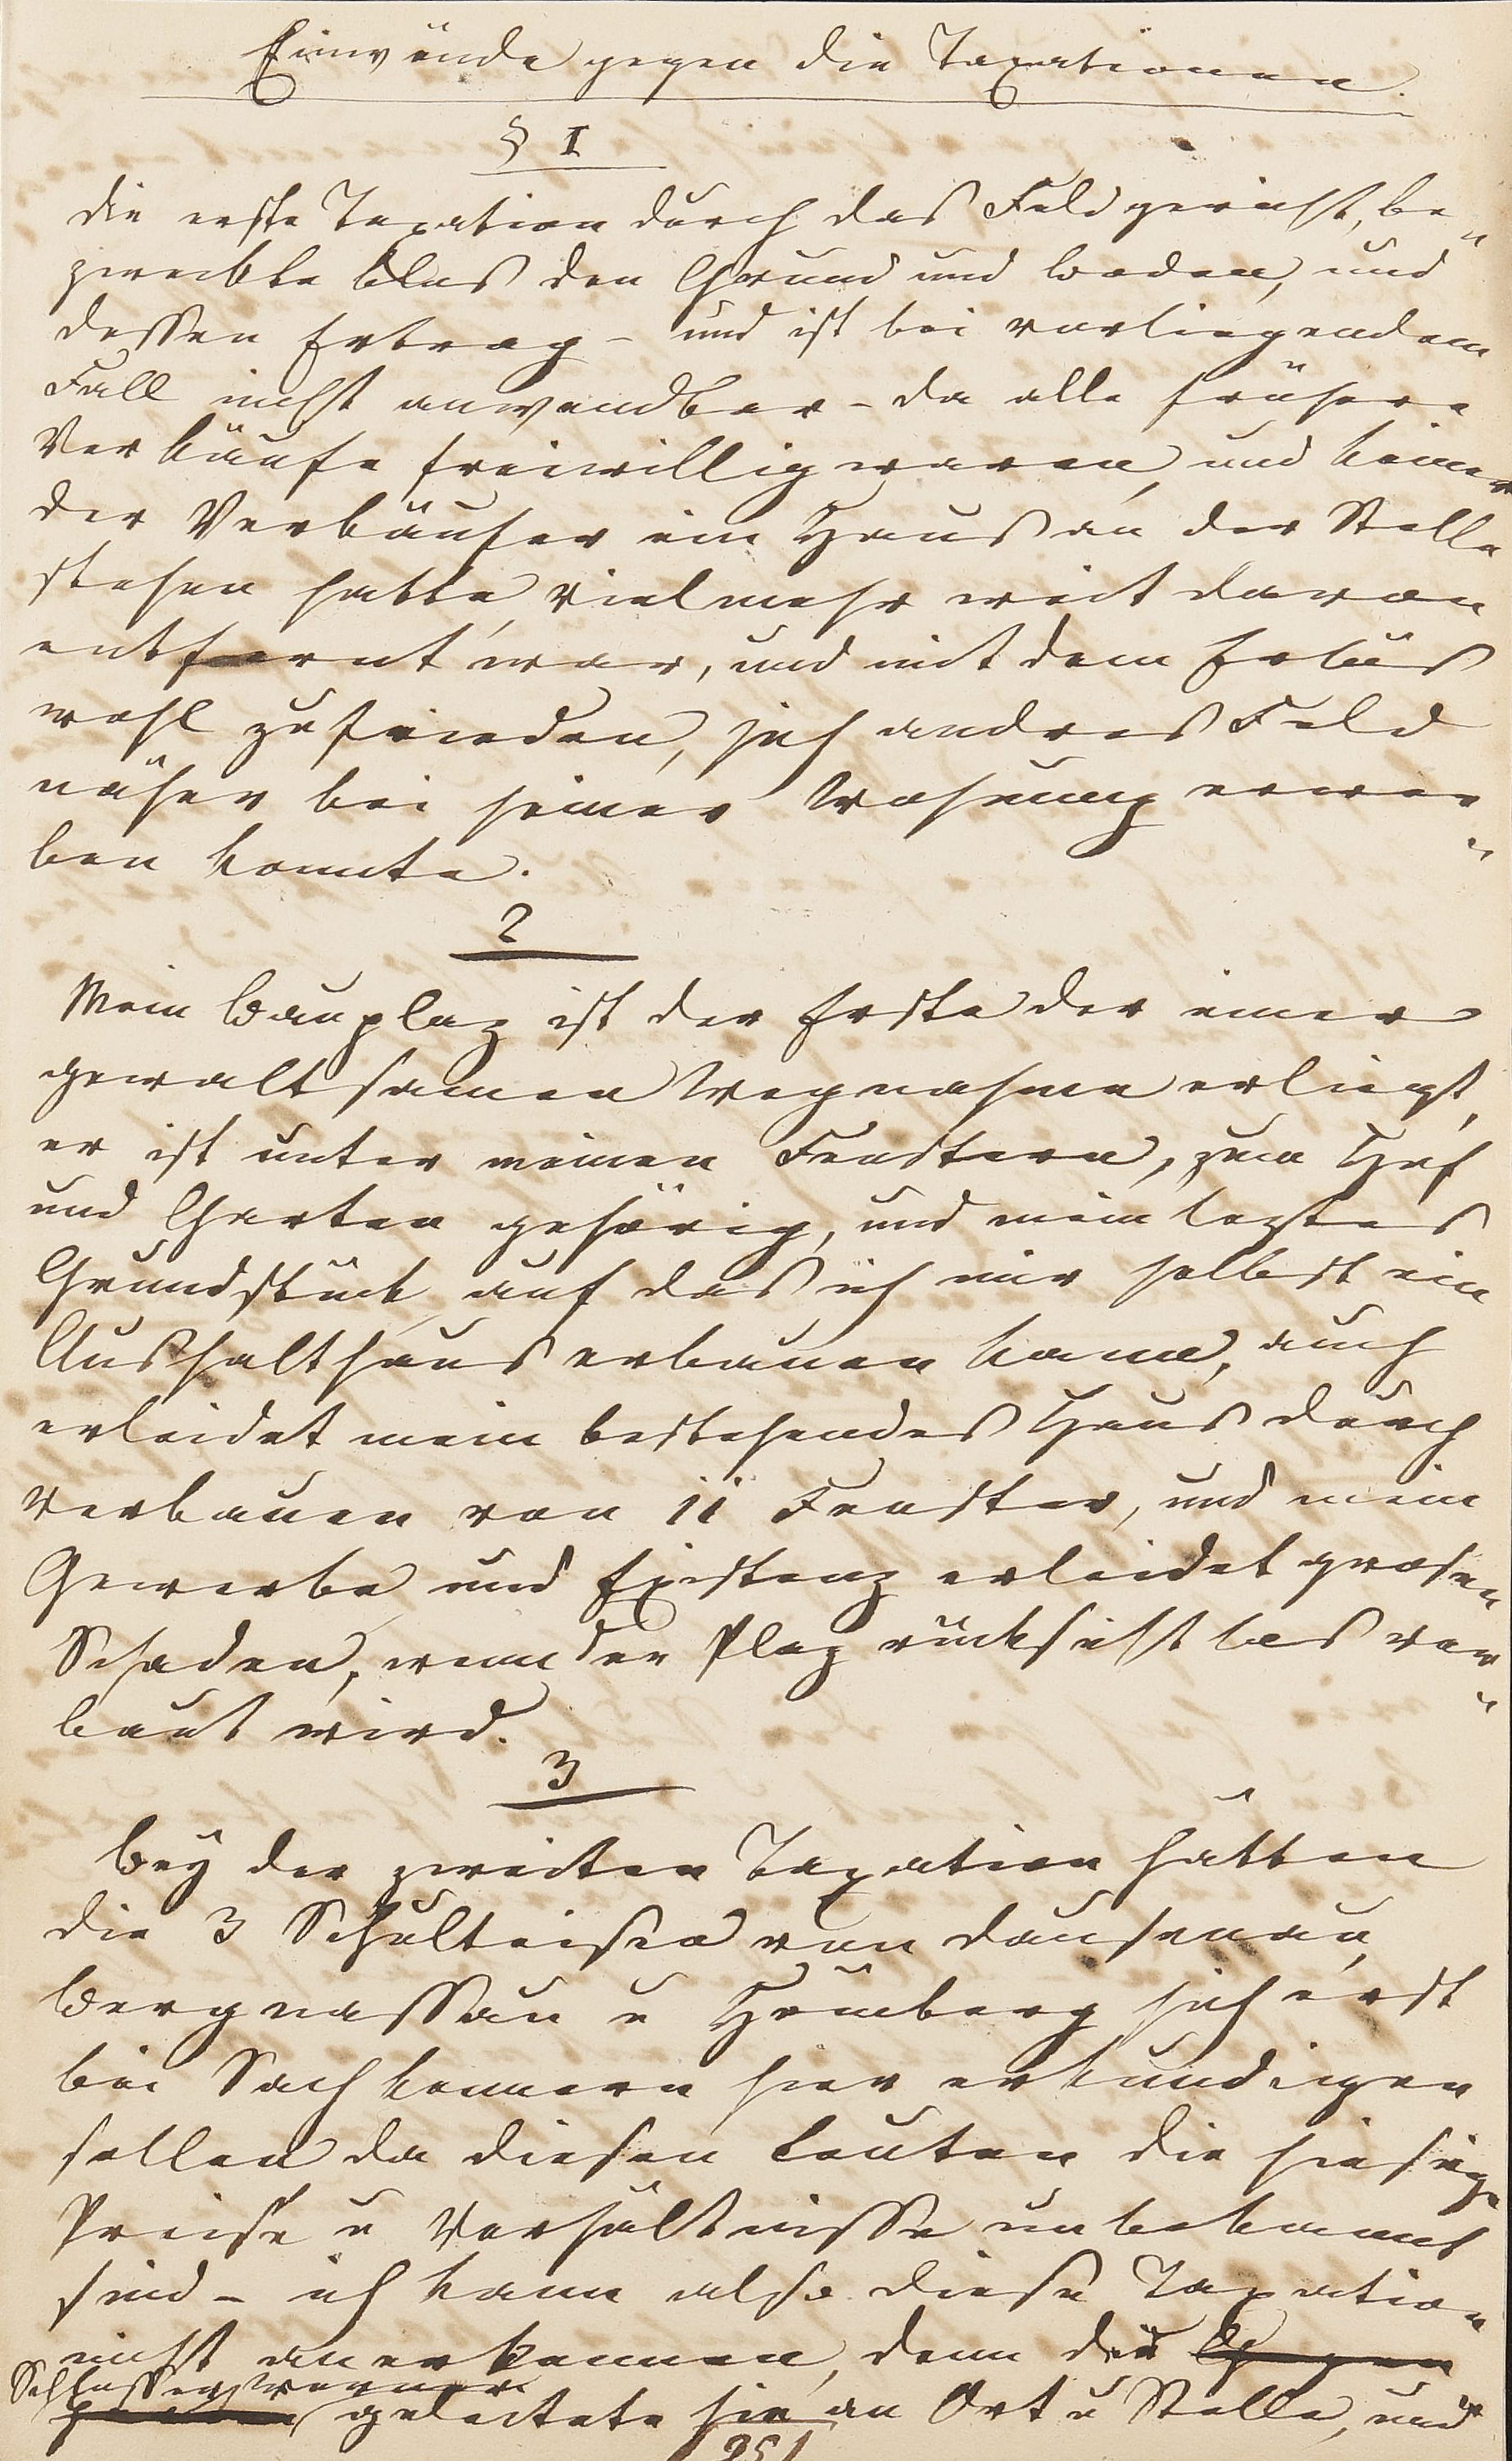 Einwände gegen die Taxationen.
§ I
die erste Taxation durch das Feldgericht, be„
zweckte blos den Grund und boden, und
dessen Ertrag – und ist bei vorliegendem
Fall nicht anwendbar – da alle frühere
Verkäufe freiwillig waren, und keiner
der Verkäufer ein Haus an der Stelle
stehen hatte, vielmehr weit davon
entfernt war, und mit dem Erlös
wohl zufrieden, sich andres Feld
näher bei seiner Wohnung erwer„
ben konnte.
2
Mein bauplaz ist der Erste der einer
gewaltsamen Wegnahme erliegt,
er ist unter meinen Fenstern, zum Hof
und Garten gehörig, und mein leztes
Grundstück auf das ich mir selbst ein
Aushalthaus erbauen kann, auch
erleidet mein bestehendes Haus durch
Verbauen von 11 Fenster, und mein
Gewerbe und Existenz erleidet grosen
Schaden, wenn der Plaz rücksichtlos ver„
baut wird.
3
bey der zweiten Taxation hätten
die 3 Schulteisen von dausenau,
bergnassau u Hömberg sich erst
bei Sachkennern hier erkundigen
sollen da diesen Leuten die hiesige
Preise u Verhältnisse unbekannt
sind – ich kann also diese Taxation
nicht anerkennen, denn der
Schlosser Werner
geleitete sie an Ort u Stelle, und
251